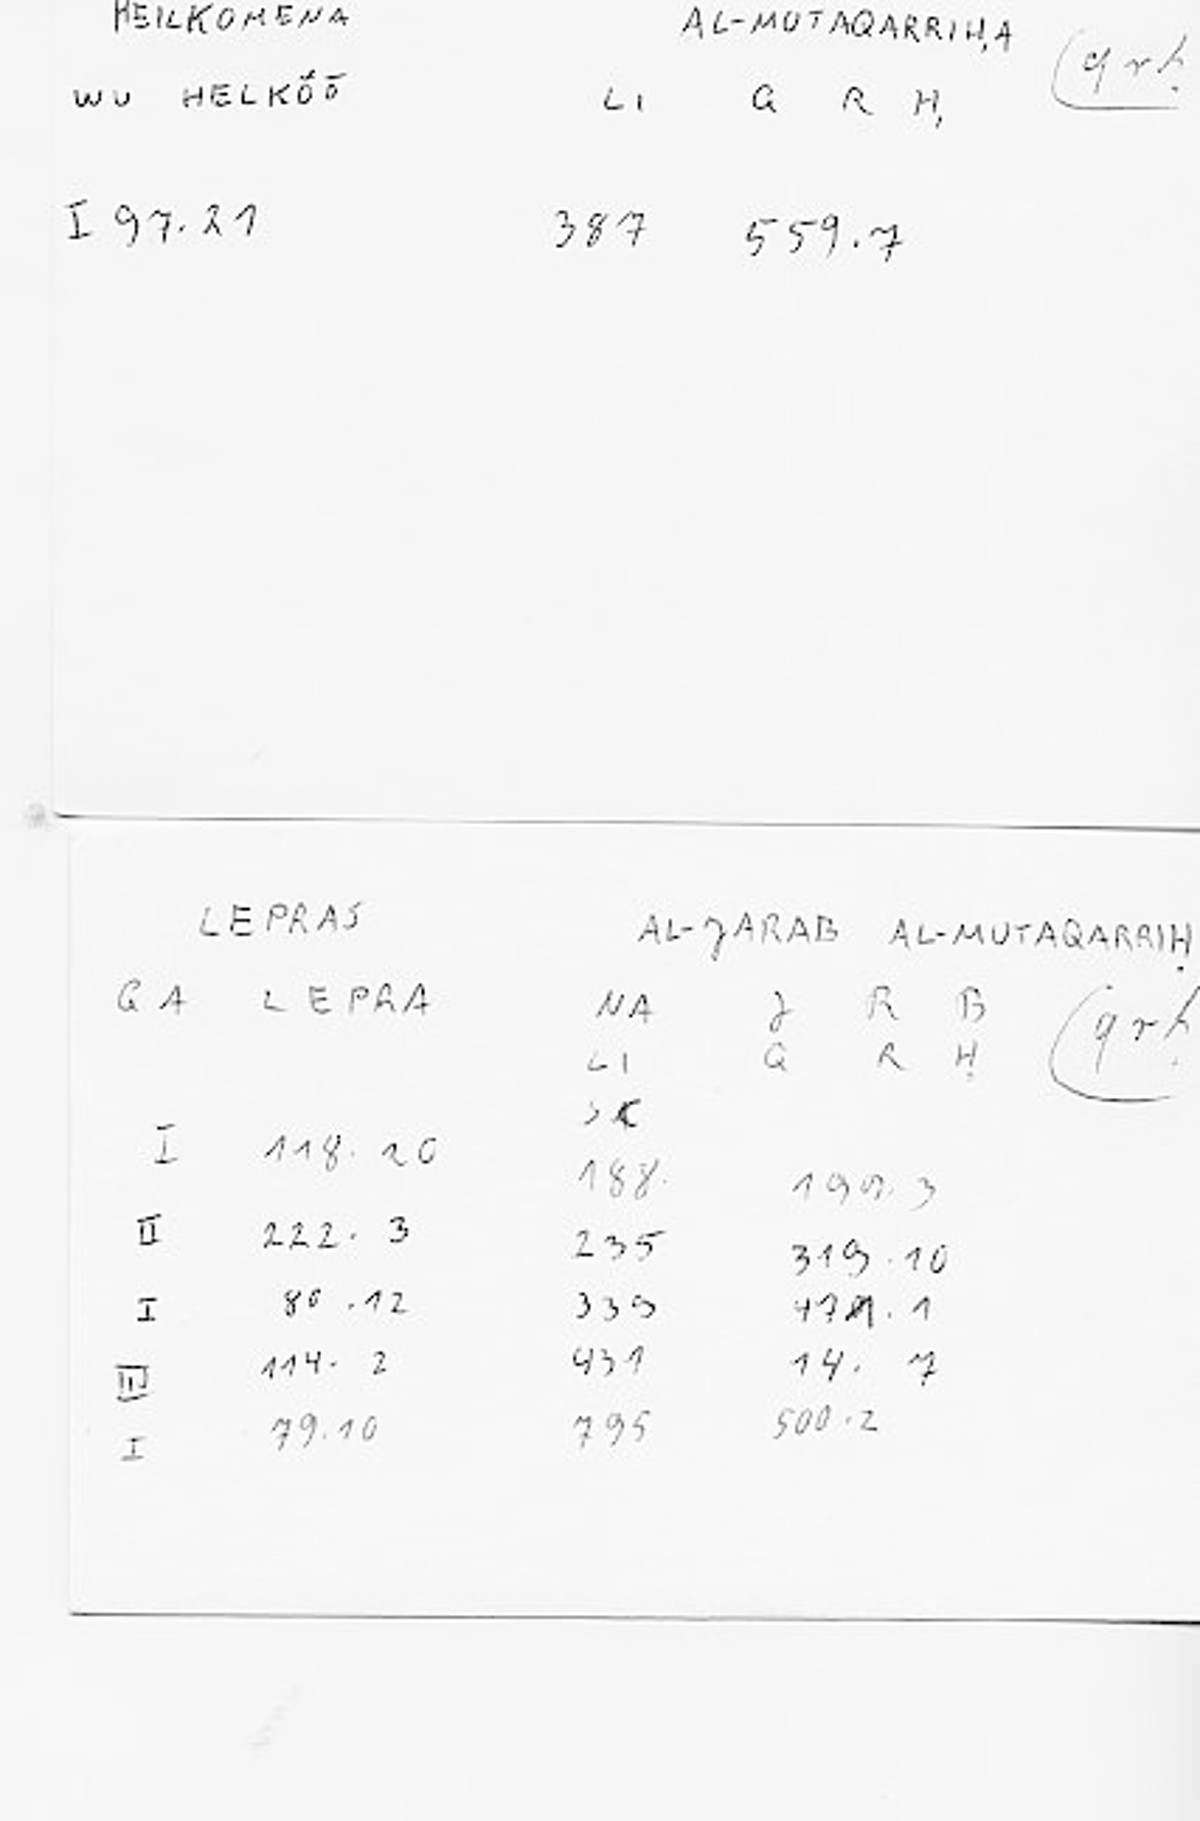 HEILKOMENA AL-MUTAQARRIḤA (qrḥ
WU HELKÓŌ LI Q R Ḥ
I 97.21 387 559.7
LEPRAS AL-JARAB AL-MUTAQARRIḤ
GA LEPRA NA J R B (qrḥ
LI Q R Ḥ
I 118.20 188.
II 222.3 235 319.10
I 80.12 339
III 114.2 431 14.7
I 79.10 795 500.2